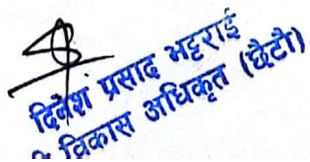 दिनेश प्रसाद भट्टराई
विकास अधिकृत (छैटौ)